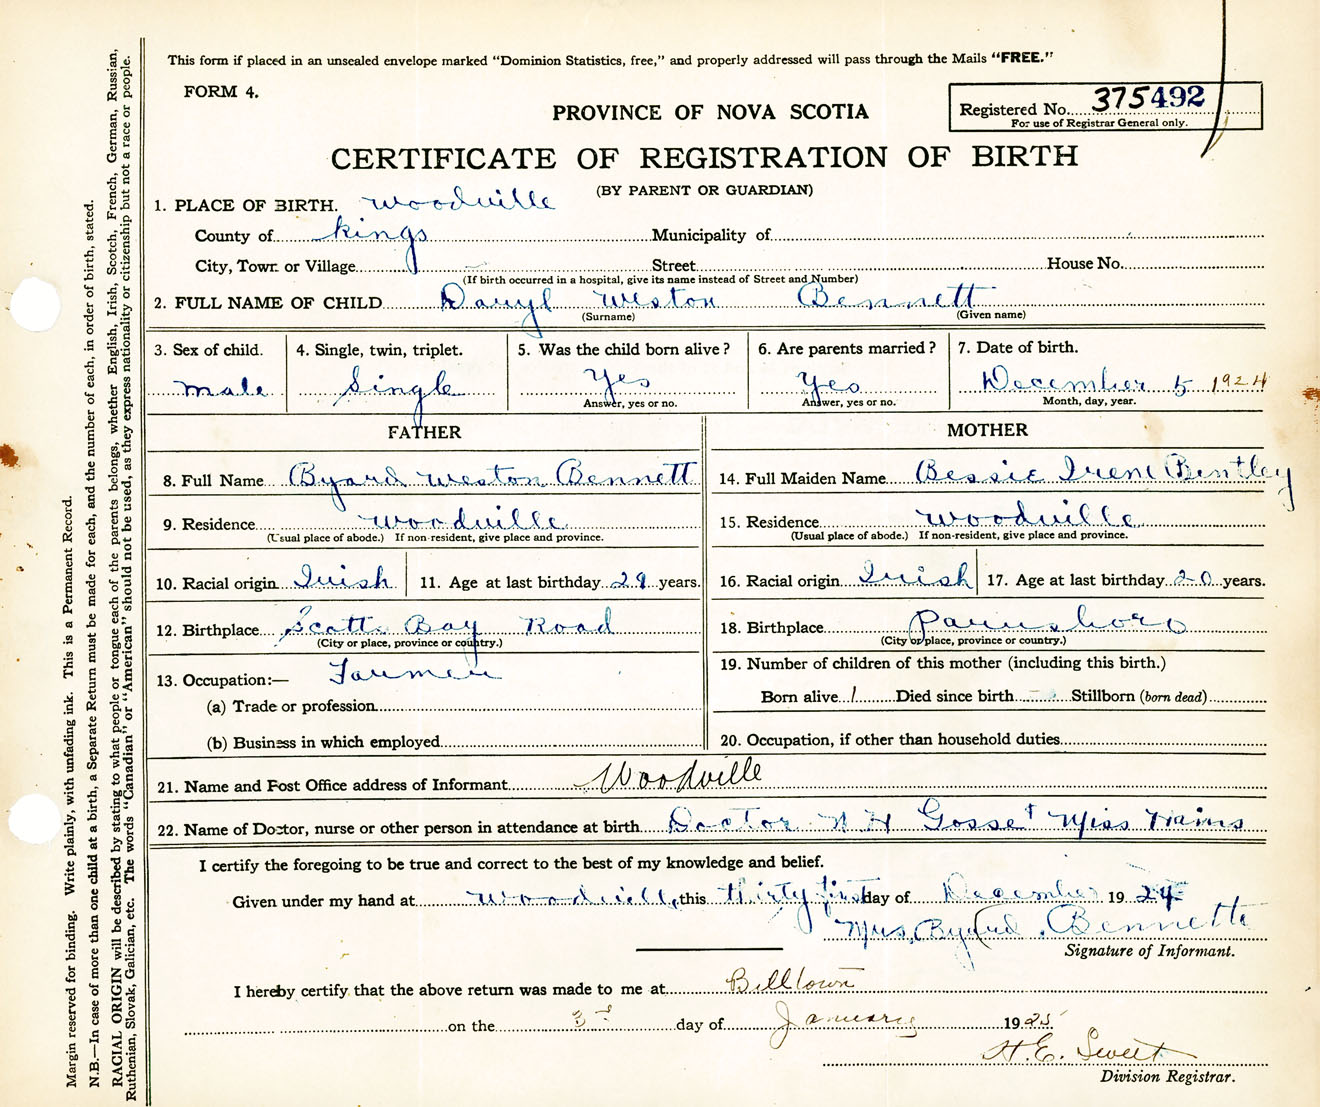 This form if placed in an unsealed envelope marked "Dominion Statistics, free," and properly addressed will pass through the Mails "FREE."
FORM 4.
PROVINCE OF NOVA SCOTIA
Registered No. 375492
For use of Registrar General only.
CERTIFICATE OF REGISTRATION OF BIRTH
(BY PARENT OR GUARDIAN)
1. PLACE OF BIRTH. Woodville
County of Kings Municipality of
City, Town or Village Street House No.
(If birth occurred in a hospital, give its name instead of Street and Number)
2. FULL NAME OF CHILD Dauyl Weston Bennett
(Surname) (Given name)
3. Sex of child. 4. Single, twin, triplet. 5. Was the child born alive? 6. Are parents married? 7. Date of birth.
male Single Yes Yes December 5 1924
Answer, yes or no. Answer, yes or no. Month, day, year.
FATHER MOTHER
8. Full Name Byard Weston Bennett 14. Full Maiden Name Bessie Irene Bentley
9. Residence Woodville 15. Residence Woodville
(Usual place of abode.) If non-resident, give place and province. (Usual place of abode.) If non-resident, give place and province.
10. Racial origin Irish 11. Age at last birthday 29 years. 16. Racial origin Irish 17. Age at last birthday 20 years.
12. Birthplace Scotts Bay Road 18. Birthplace Parrsboro
(City or place, province or country.) (City or place, province or country.)
13. Occupation:— Farmer 19. Number of children of this mother (including this birth.)
(a) Trade or profession Born alive 1 Died since birth Stillborn (born dead)
(b) Business in which employed 20. Occupation, if other than household duties
21. Name and Post Office address of Informant Woodville
22. Name of Doctor, nurse or other person in attendance at birth Doctor N H Gosse + Miss
I certify the foregoing to be true and correct to the best of my knowledge and belief.
Given under my hand at Woodville, this thirty first day of December 1924
Mrs. Byard Bennett
Signature of Informant.
I hereby certify that the above return was made to me at Billtown
on the 3rd day of January 1925
H. E. Sweet
Division Registrar.
Margin reserved for binding. Write plainly, with unfading ink. This is a Permanent Record.
N.B.—In case of more than one child at a birth, a Separate Return must be made for each, and the number of each, in order of birth, stated.
RACIAL ORIGIN will be described by stating to what people or tongue each of the parents belongs, whether English, Irish, Scotch, French, German, Russian,
Ruthenian, Slovak, Galician, etc. The words "Canadian" or "American" should not be used, as they express nationality or citizenship but not a race or people.